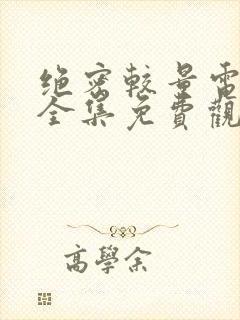 绝密較量電
全集免費觀
高學余